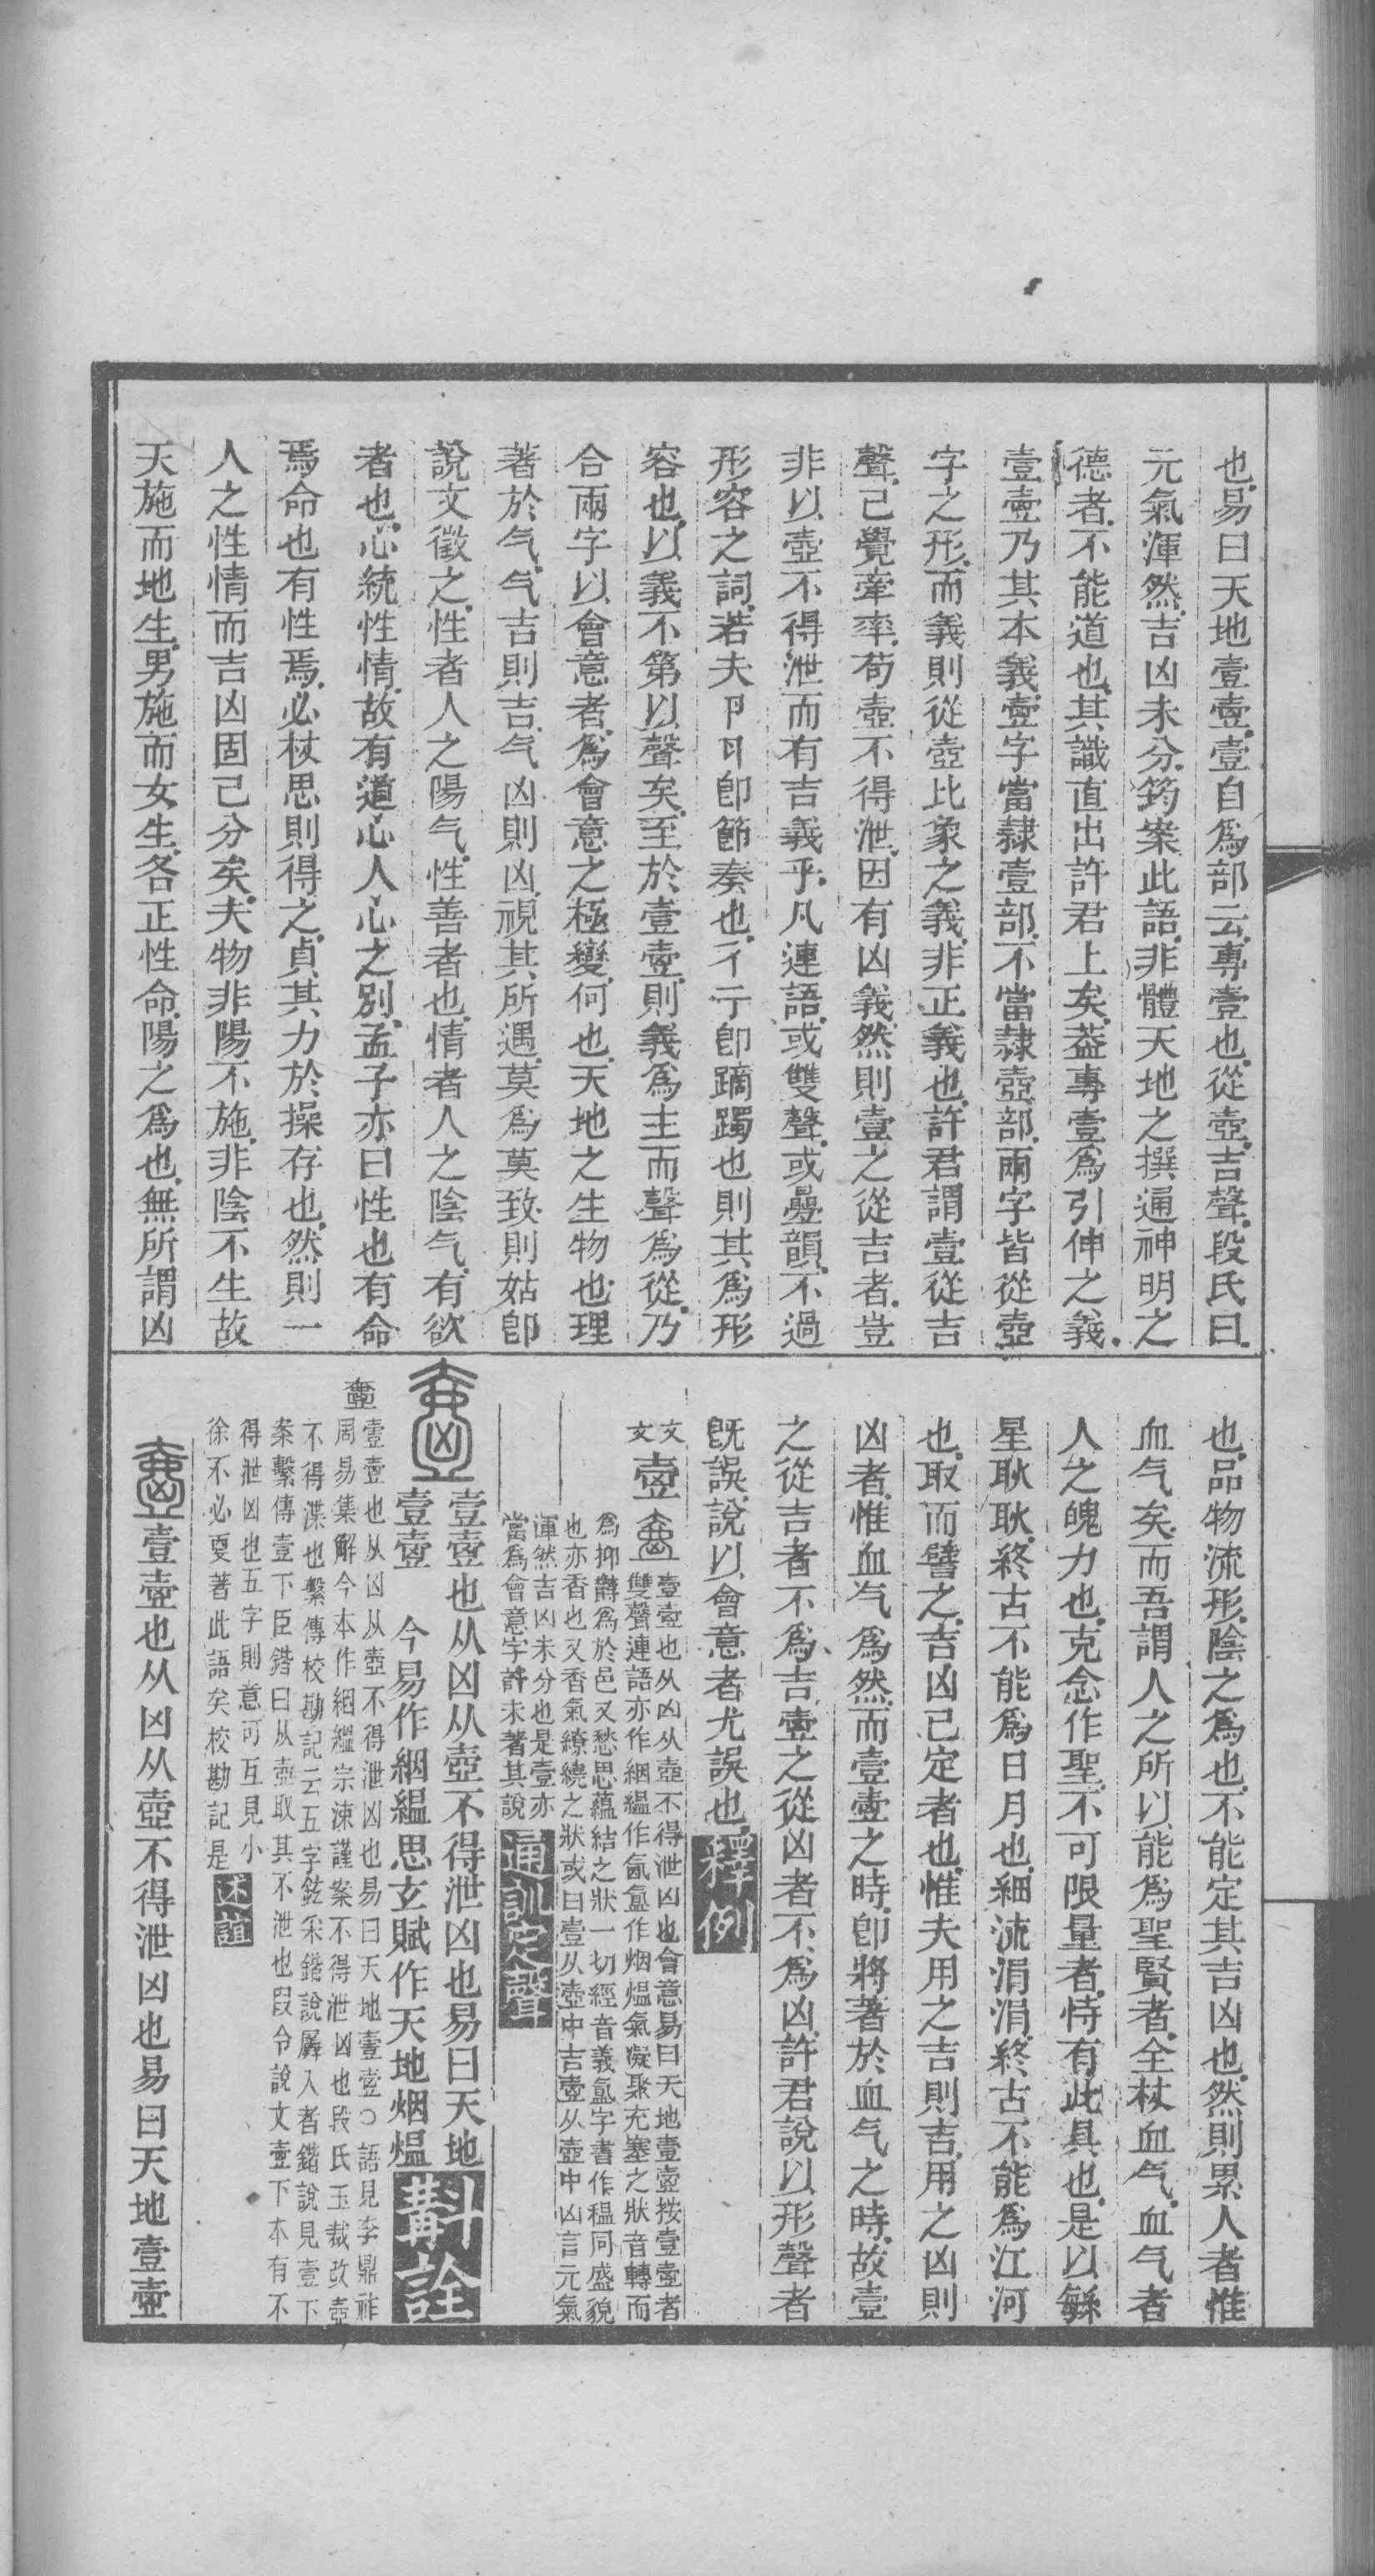 也易曰天地壹壺壹自爲部云專壹也從壺吉聲段氏曰
元氣渾然吉凶未分筠案此語非體天地之撰通神明之
德者不能道也其識直出許君上矣葢專壹爲引伸之義
壹壺乃其本義壺字當隸壹部不當隸壺部兩字皆從壺
字之形而義則從壺比象之義非正義也許君謂壹從吉
聲已覺牽率苟壺不得泄因有凶義然則壹之從吉者豈
非以壺不得泄而有吉義乎凡連語或雙聲或疊韻不過
形容之詞若夫卩㔿卽節奏也彳亍卽蹢躅也則其爲形
容也以義不第以聲矣至於壹壺則義爲主而聲爲從乃
合兩字以會意者爲會意之極變何也天地之生物也理
著於气气吉則吉气凶則凶視其所遇莫爲莫致則姑卽
說文徵之性者人之陽气性善者也情者人之陰气有欲
者也心統性情故有道心人心之別孟子亦曰性也有命
焉命也有性焉必杖思則得之貞其力於操存也然則一
人之性情而吉凶固已分矣夫物非陽不施非陰不生故
天施而地生男施而女生各正性命陽之爲也無所謂凶
也品物流形陰之爲也不能定其吉凶也然則累人者惟
血气矣而吾謂人之所以能爲聖賢者全杖血气血气者
人之魄力也克念作聖不可限量者恃有此具也是以緐
星耿耿終古不能爲日月也細流涓涓終古不能爲江河
也取而譬之吉凶已定者也惟夫用之吉則吉用之凶則
凶者惟血气爲然而壹壺之時卽將著於血气之時故壹
之從吉者不爲吉壺之從凶者不爲凶許君說以形聲者
旣誤說以會意者尤誤也釋例
文文壺壹壺也从凶从壺不得泄凶也會意易曰天地壹壺按壹壺者
雙聲連語亦作絪縕作氤氳作烟熅氣凝聚充塞之狀音轉而
爲抑鬱爲於邑又愁思蘊結之狀一切經音義氳字書作馧同盛貌
也亦香也又香氣繚繞之狀或曰壹从壺中吉壺从壺中凶言元氣
渾然吉凶未分也是壹亦
當爲會意字許未著其說通訓定聲
壹壺也从凶从壺不得泄凶也易曰天地
壹壺　今易作絪縕思玄賦作天地烟熅斠詮
壹壺也从凶从壺不得泄凶也易曰天地壹壺○語見李鼎祚
周易集解今本作絪縕宗涑謹案不得泄凶也段氏玉裁改壺
不得渫也繫傳校勘記云五字鉉采鍇說羼入者鍇說見壹下
案繫傳壹下臣鍇曰从壺取其不泄也叚令說文壺下本有不
得泄凶也五字則意可互見小
徐不必夏著此語矣校勘記是述誼
壹壺也从凶从壺不得泄凶也易曰天地壹壺